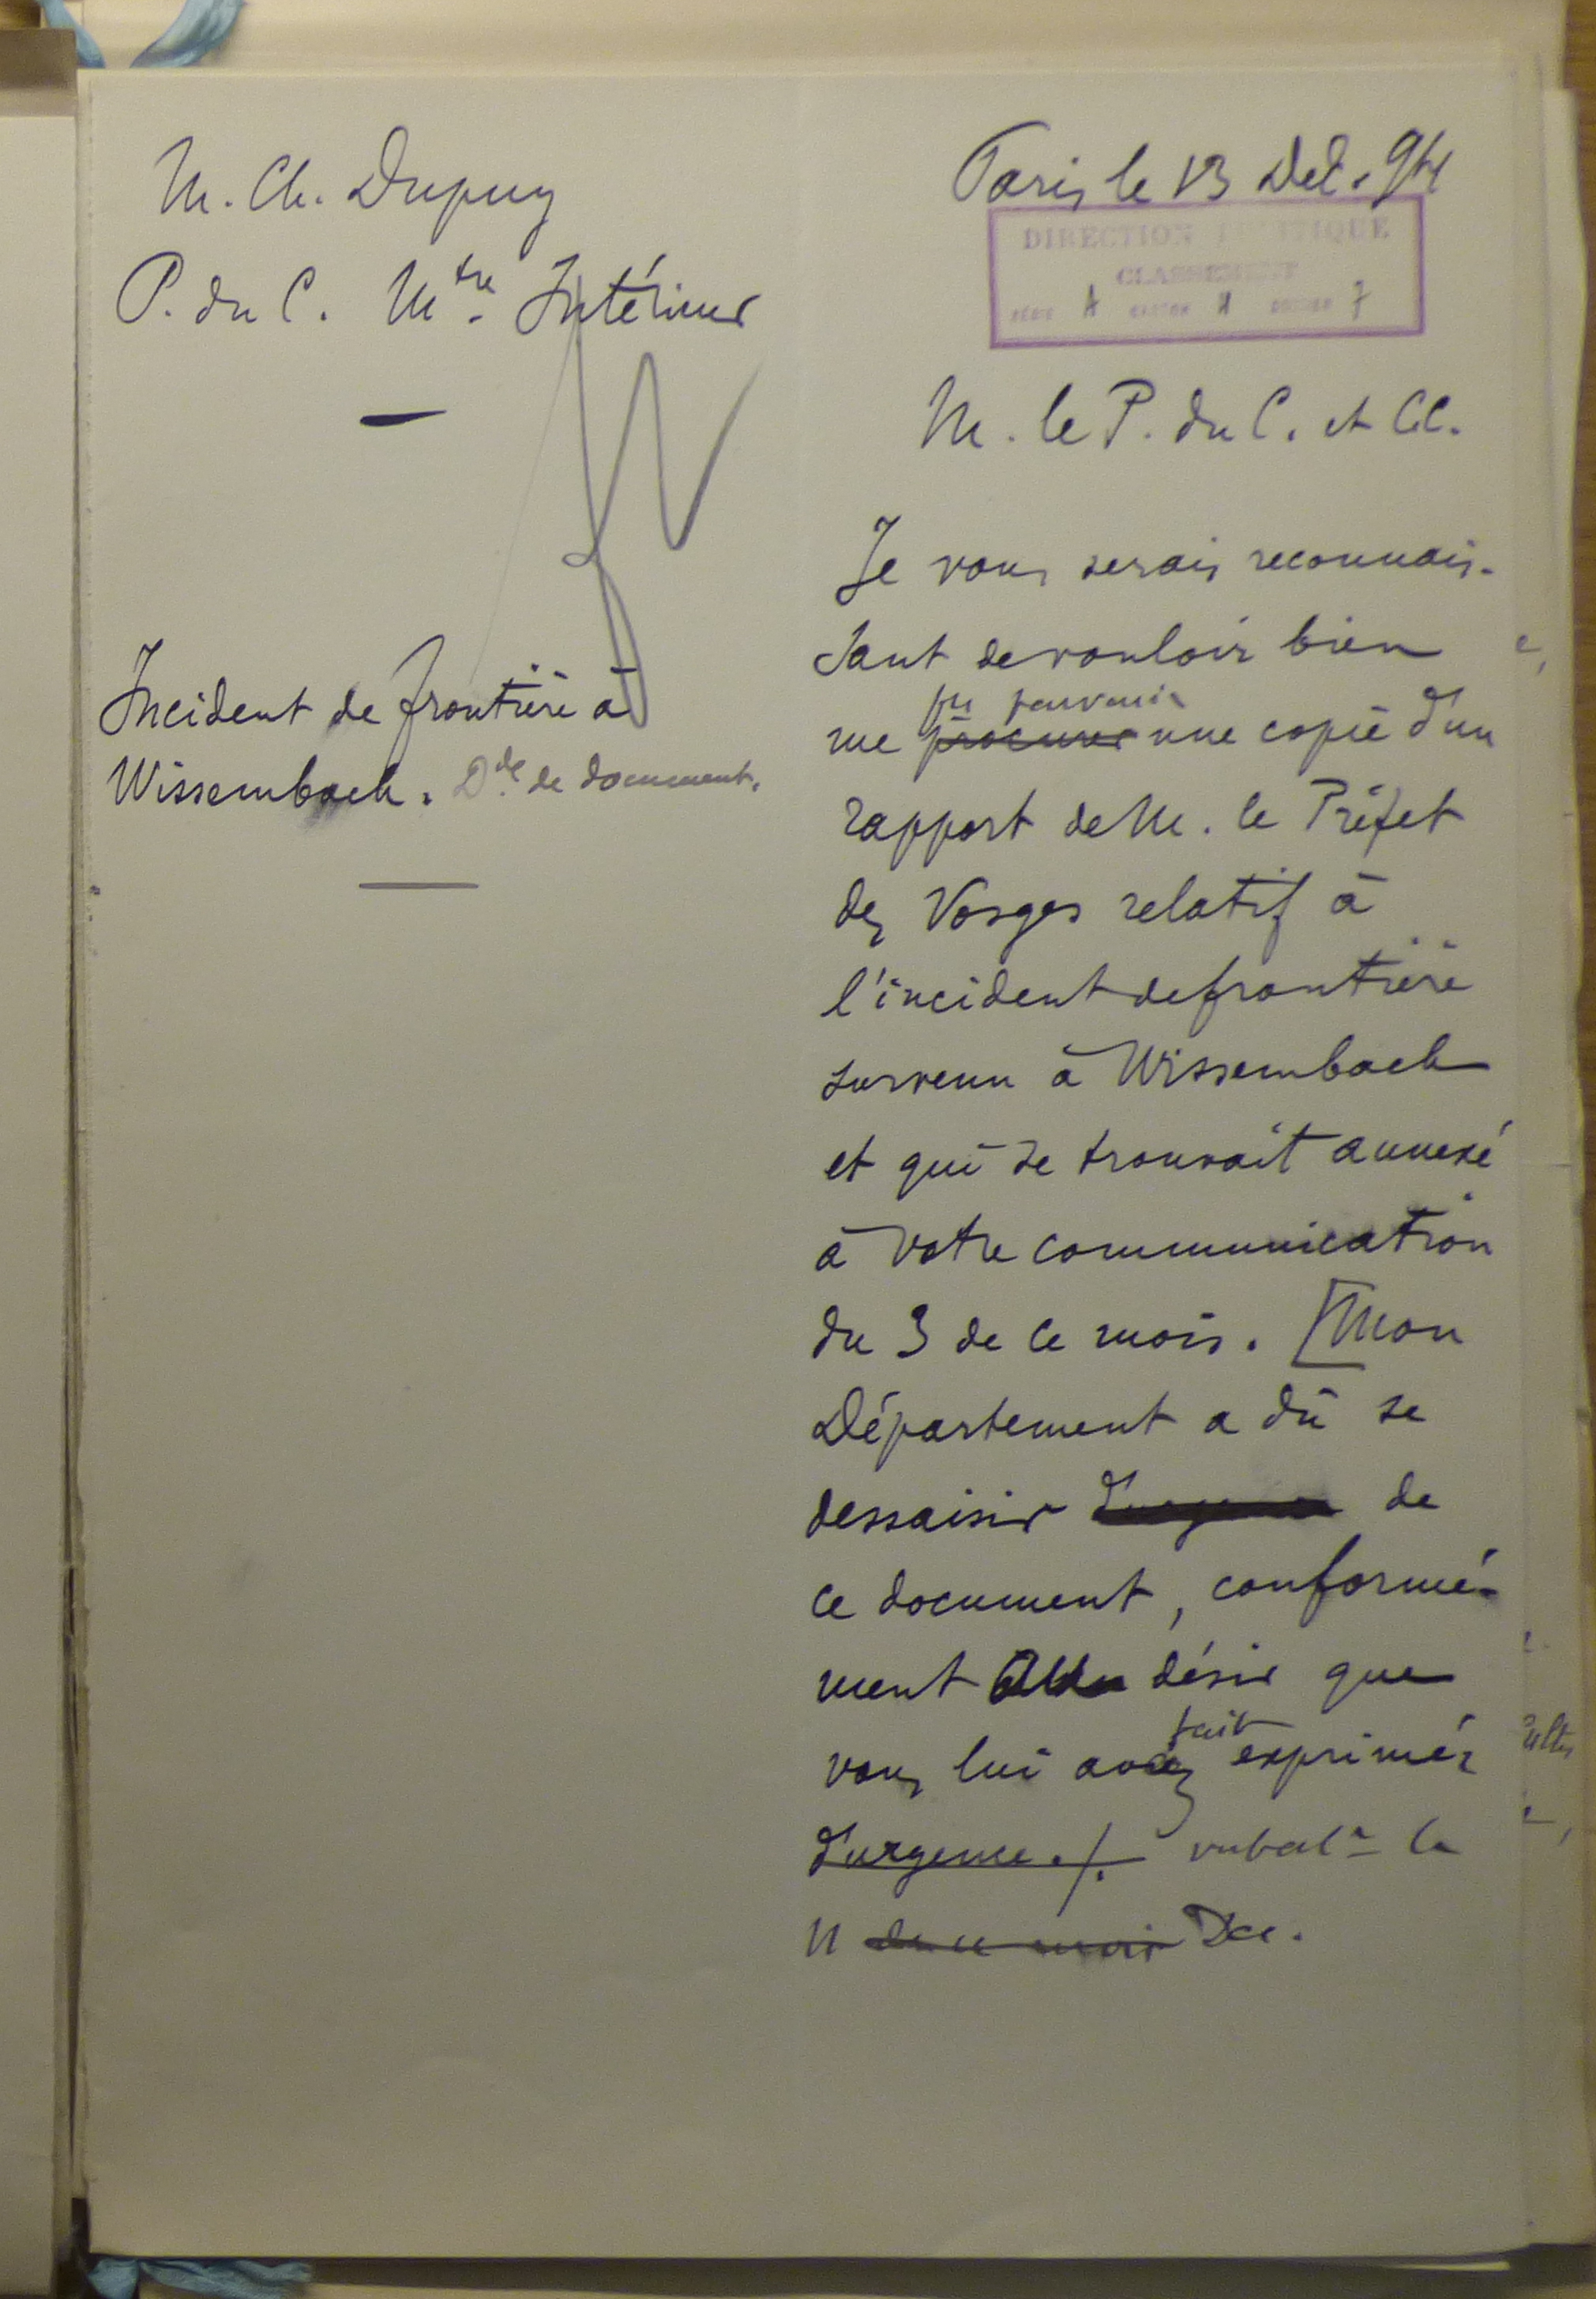 M. Ch. Dupuy
P. du C. Mtre Intérieur
Incident de frontière à
Wissembach. Dde de document.
Paris, le 13 Déc. 94
DIRECTION POLITIQUE
CLASSEMENT
SÉRIE A CARTON DOSSIER 7
M. le P. du C. et CC.
Je vous serais reconnais-
sant de vouloir bien
faire parvenir
me procurer une copie d'un
rapport de M. le Préfet
des Vosges relatif à
l'incident de frontière
survenu à Wissembach
et qui se trouvait annexé
à votre communication
du 3 de ce mois. [Mon
Département a dû se
dessaisir d'urgence de
ce document, conformé-
ment au désir que
fait
vous lui avez exprimer
d'urgence ./. verbalt le
11 de ce mois Dec.